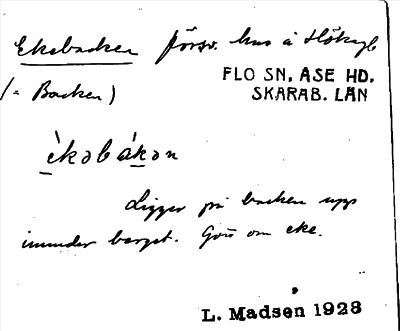 Ekebacken försv. hus å Hökagb
FLO SN, ASE HD.
(= Backen) SKARAB. LÄN
èkəbákən
Ligger på backen upp
inunder berget. Gott om eke.
L. Madsen 1928